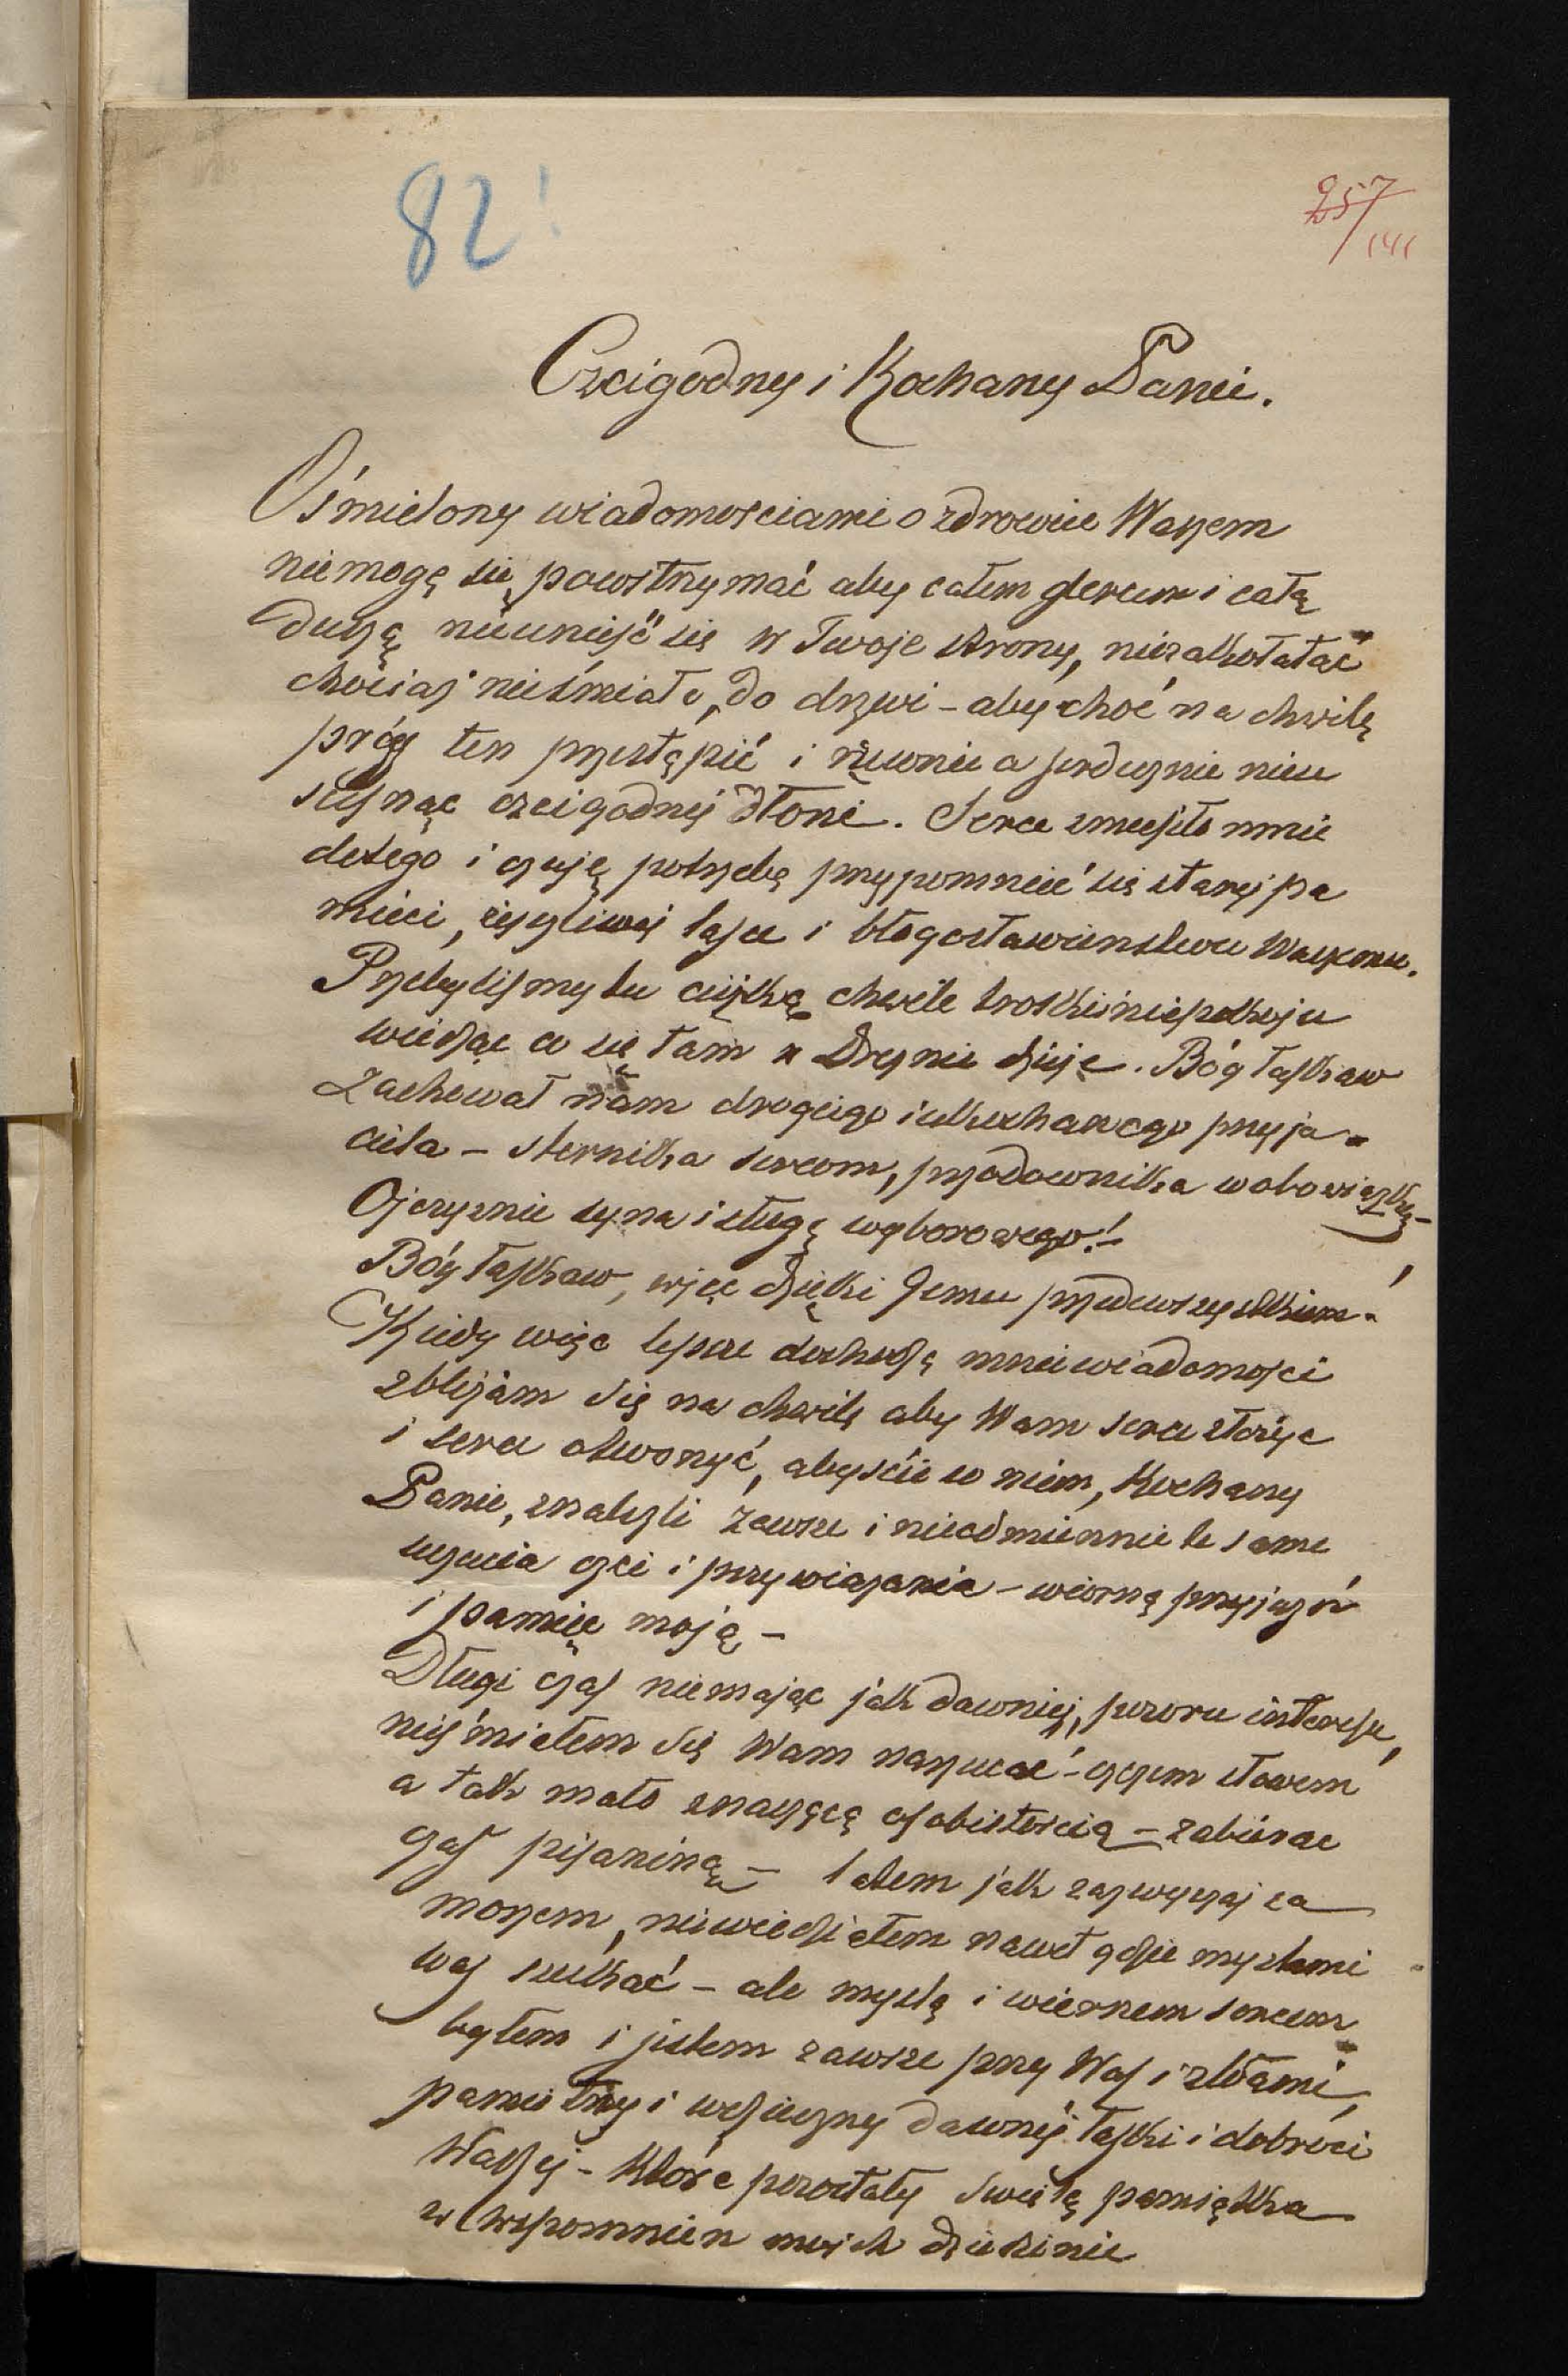 82!
257
141
Czcigodny i Kochany Panie.
Ośmielony wiadomościami o zdrowiu Waszem
niemogę się powstrzymać aby całem sercem i całą
duszą nieunieść się w Twoje strony, niezakołatać
chociaż nieśmiało, do drzwi – aby choć na chwilę
próg ten przestąpić i rzewnie a serdecznie nieu
ścisnąc czcigodnej dłoni. Serce zmusiło mnie
dotego i czuję potrzebę przypomnieć się starej pa
mięci, życzliwej łasce i błogosławienstwu Waszemu.
Przebyliśmy tu ciężką chwile troski i niepokoju
wiedząc co się tam w Dreznie dzieje. Bóg łaskaw
zachował nam drogiego i ukochanego przyja-
ciela – sternika sercom, przodownika wobowiązku –
Ojczyznie syna i sługę wyborowego! –
Bóg łaskaw, więc dzięki Jemu przedewszystkiem!
Kiedy więc lepsze dochodzą mnie wiadomości
zbliżam się na chwilę aby Wam serce złożyc
i serce otworzyć, abyście w niem, Kochany
Panie, znalezli zawsze i nieodmiennie te same
uczucia czci i przywiązania – wierną przyjazń
i pamięc moją –
Długi czas niemając jak dawniej, pozoru interesu,
nieśmiałem się Wam narzucać – czczem słowem
a tak mało znaczącą osobistością – zabierac
czas pisaniną – latem jak zazwyczaj za
morzem, niewiedziałem nawet gdzie myslami
Was szukać – ale myslą i wiernem sercem
byłem i jestem zawsze przy Was i z Wami,
pamiętny i wdzięczny dawnej łaski i dobroci
Waszej – które pozostały swiętą pamiątka
w wspomnien moich dziedzinie